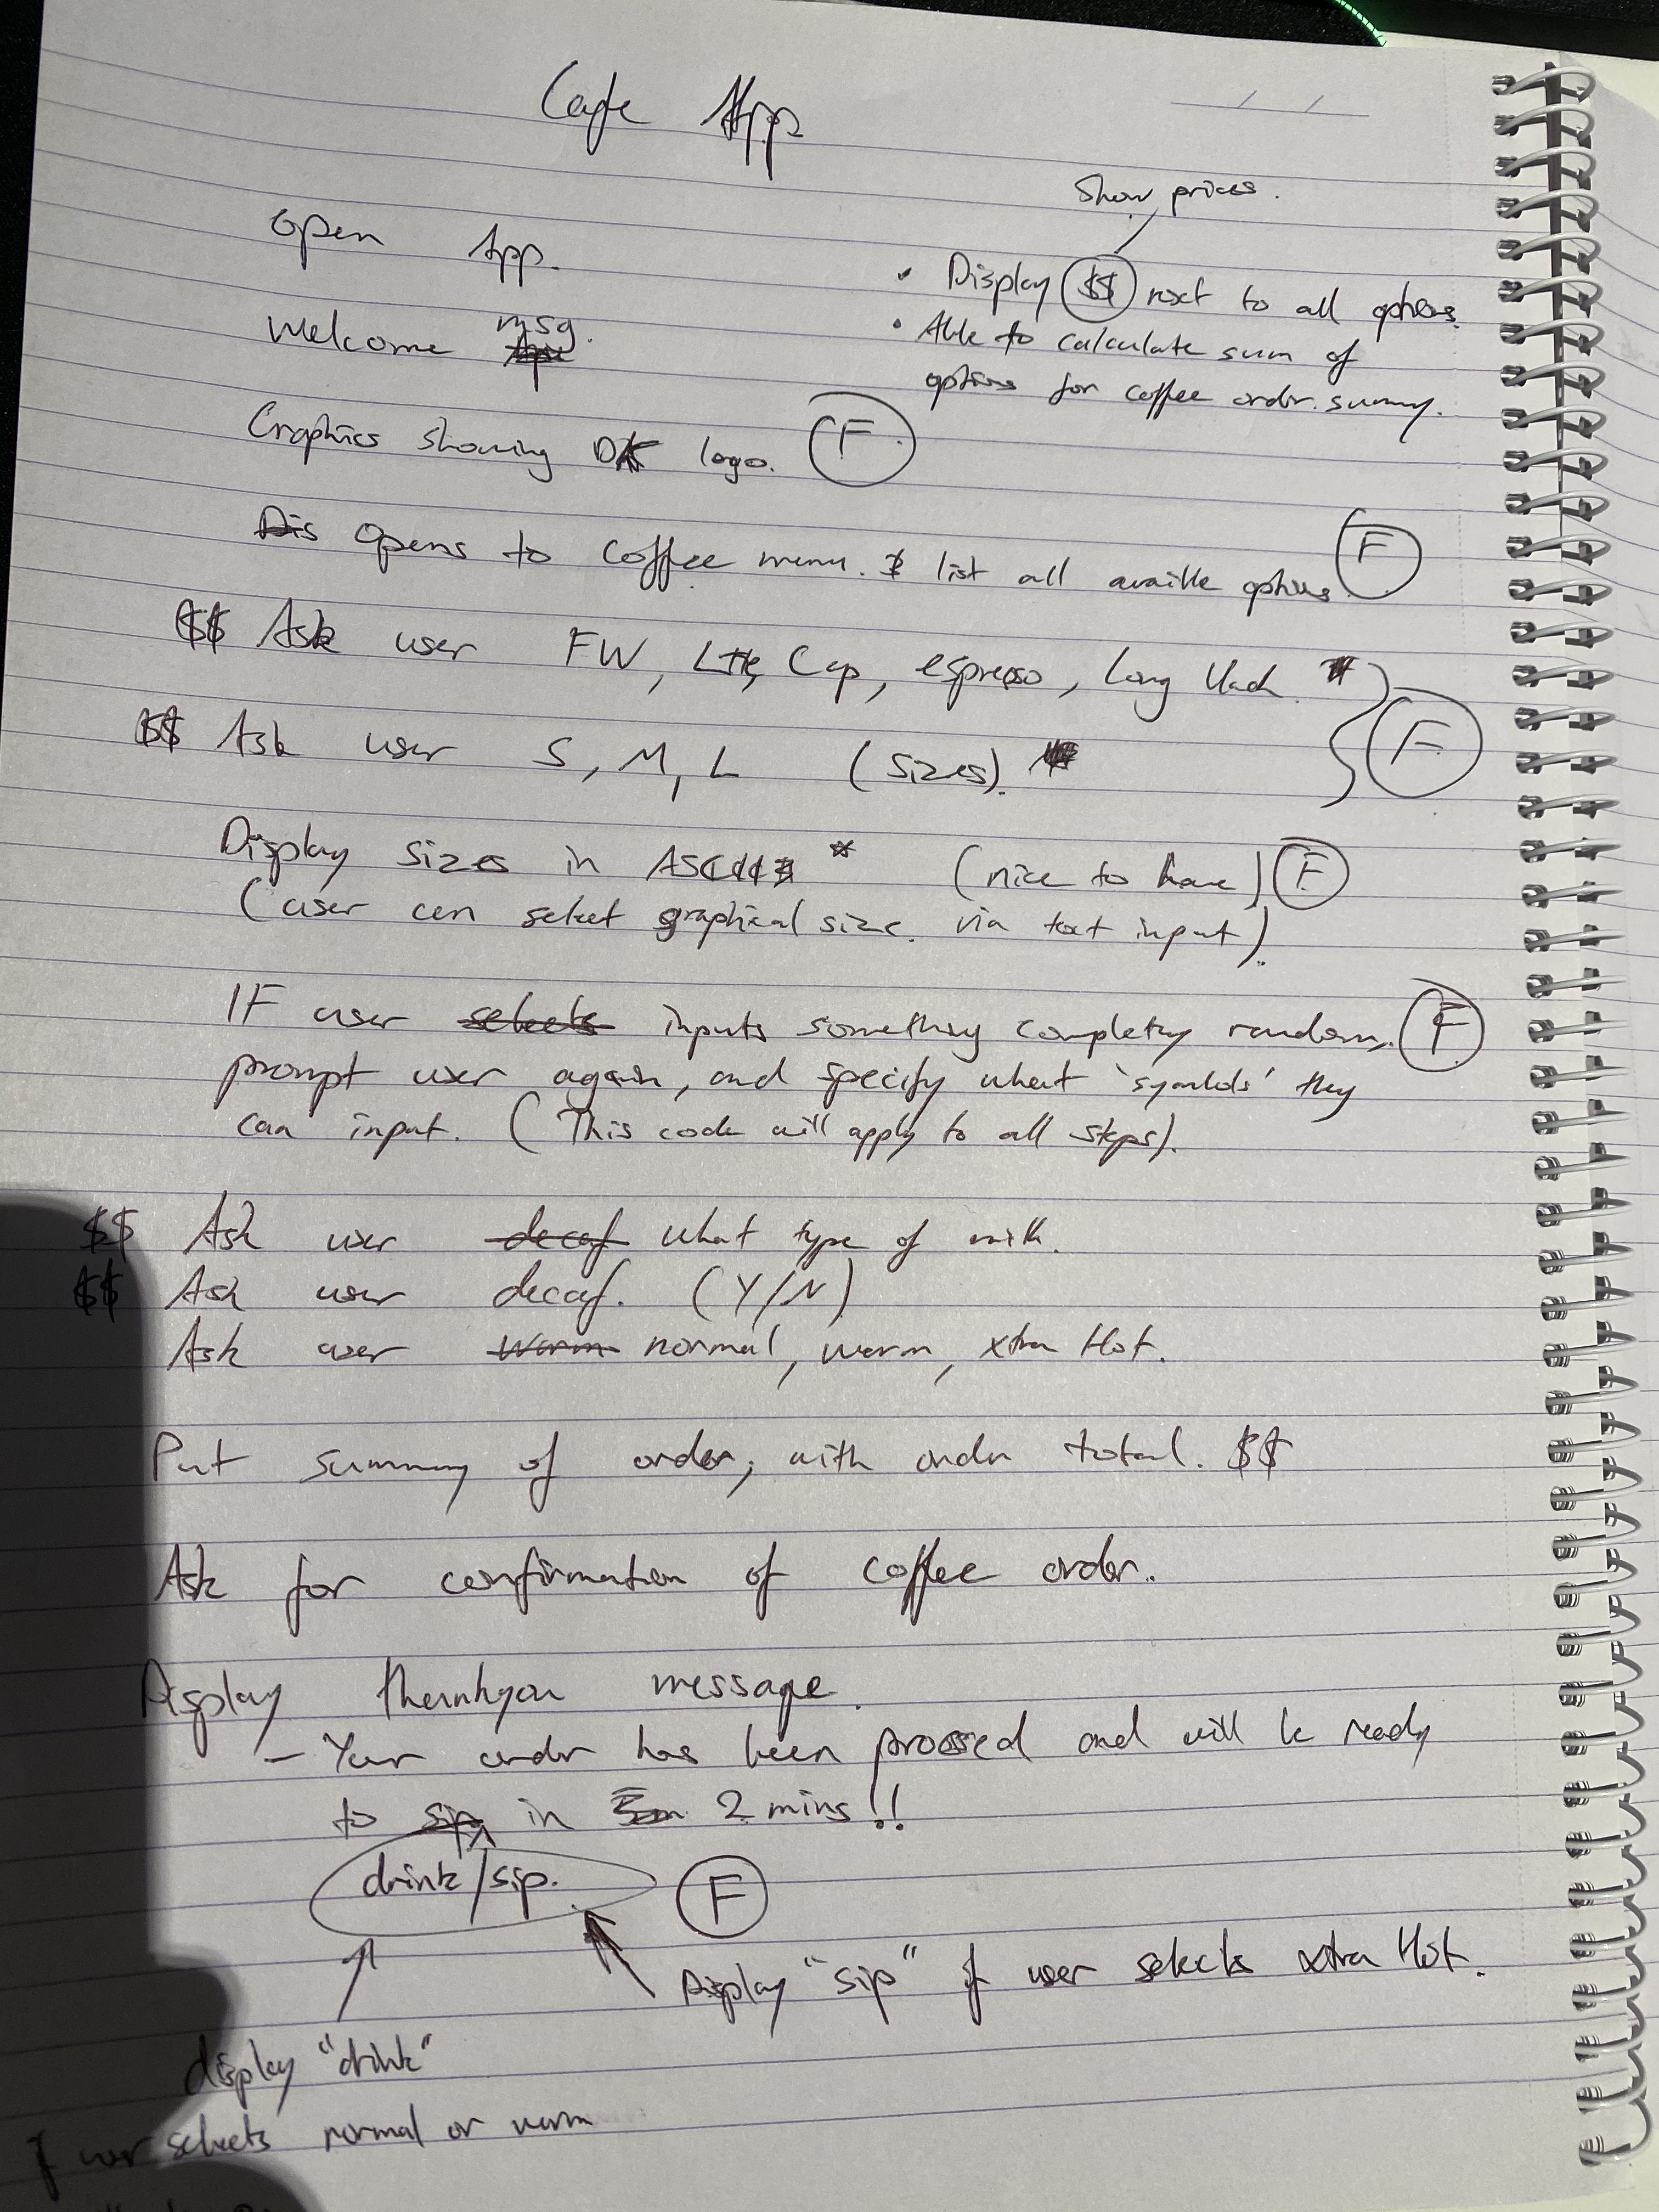 Cafe App
Show prices.
Open App.
• Display $$ next to all options.
Welcome msg.
• Able to calculate sum of
options for coffee order summy.
Graphics showing logo. F
Dis Opens to coffee menu. & list all availle options F
$$ Ask user FW, Ltte, Cap, espresso, Long black
F
$$ Ask user S, M, L (sizes).
Display sizes in * (nice to have) F
(user can select graphical size. via text input).
IF user selects inputs something completey random, F
prompt user again, and specify what 'symbols' they
can input. (This code will apply to all steps).
$$ Ask user decaf what type of milk.
$$ Ask user decaf. (Y/N)
Ask user warm normal, warm, xtra Hot.
Put summy of order, with order total. $$
Ask for confirmation of coffee order.
Display thankyou message.
– Your order has been and will be ready
to sip in 2 mins!!
drink/sip. F
Display "sip" if user selects xtra Hot.
display "drink"
if user selects normal or warm